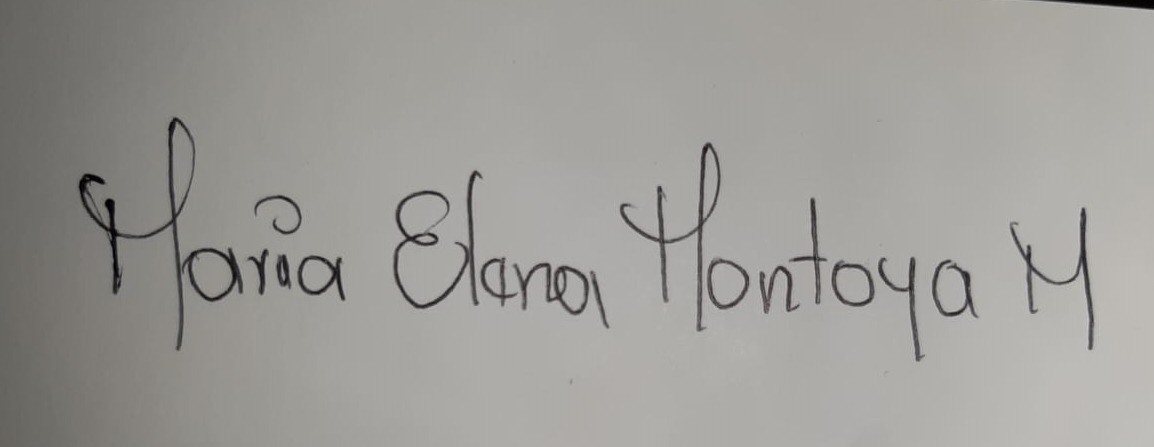 Maria Elena Montoya M